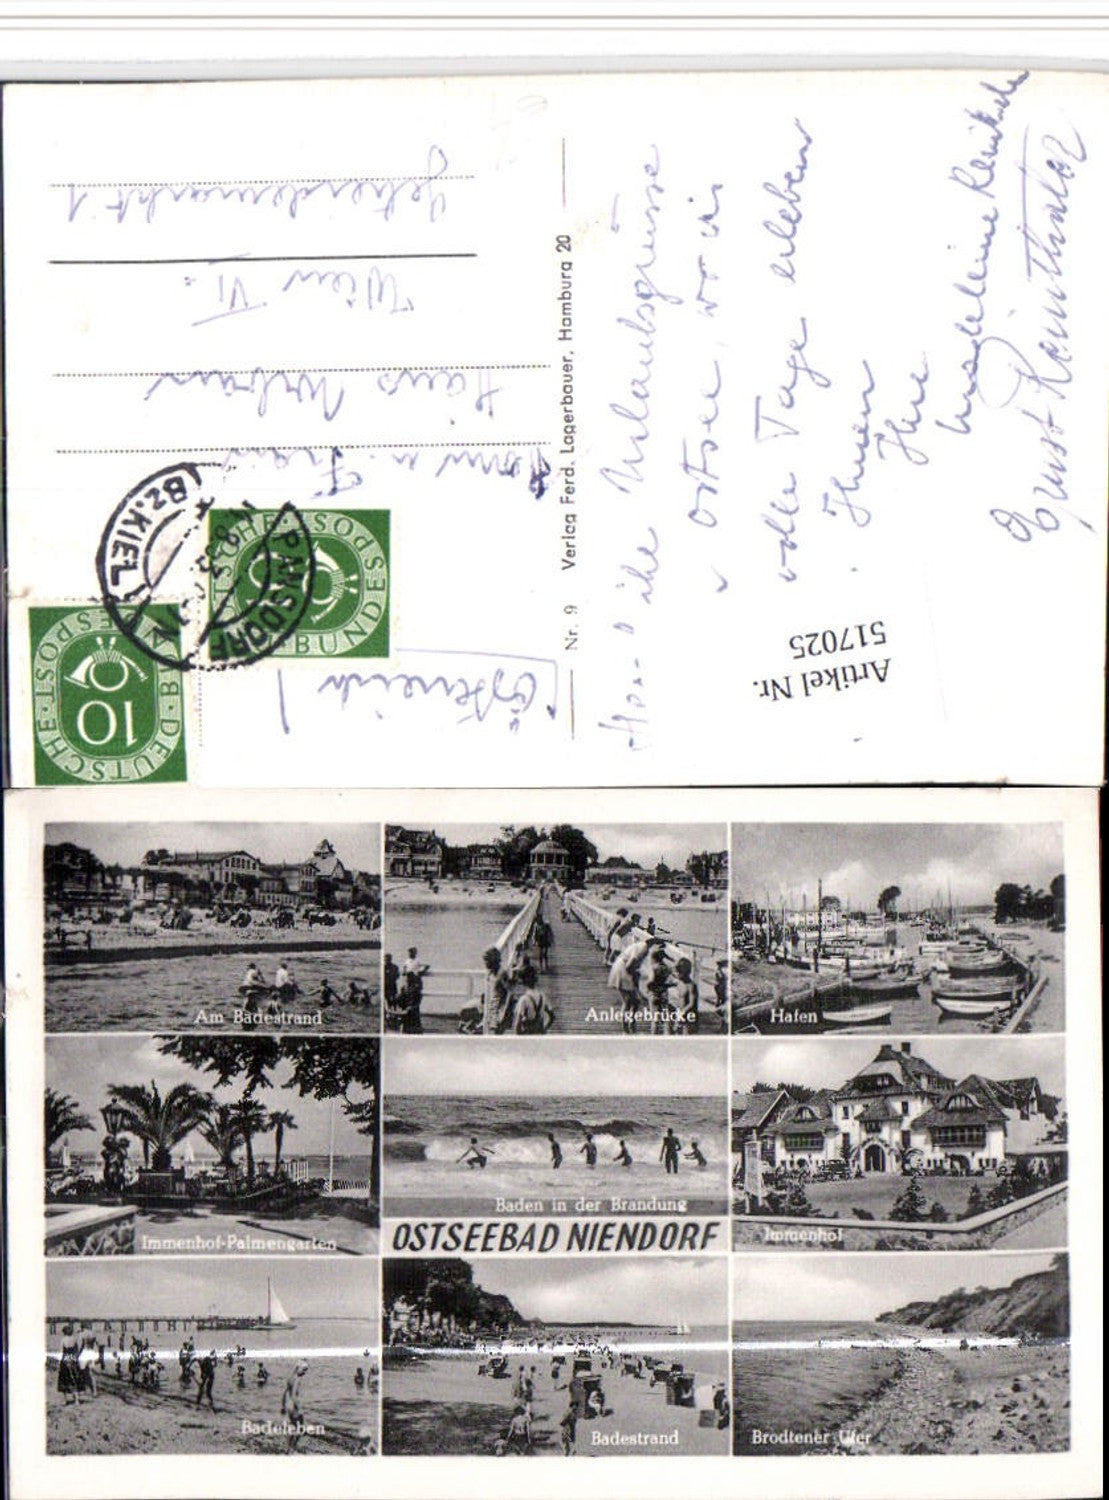 Herrliche Urlaubsgrüsse
Ostsee, wo wir
volle Tage erleben
Ihnen
Ihre
Ernst Reinthaler
Artikel Nr.
517025
Nr. 9 Verlag Ferd. Lagerbauer, Hamburg 20
PANSDORF
BZ. KIEL
DEUTSCHE BUNDESPOST
10
DEUTSCHE BUNDESPOST
Österreich
Herrn u. Frau
Hans
Wien VI.
Getreidemarkt 1
Am Badestrand
Anlegebrücke
Hafen
Immenhof-Palmengarten
Baden in der Brandung
OSTSEEBAD NIENDORF
Immenhof
Badeleben
Badestrand
Brodtener Ufer